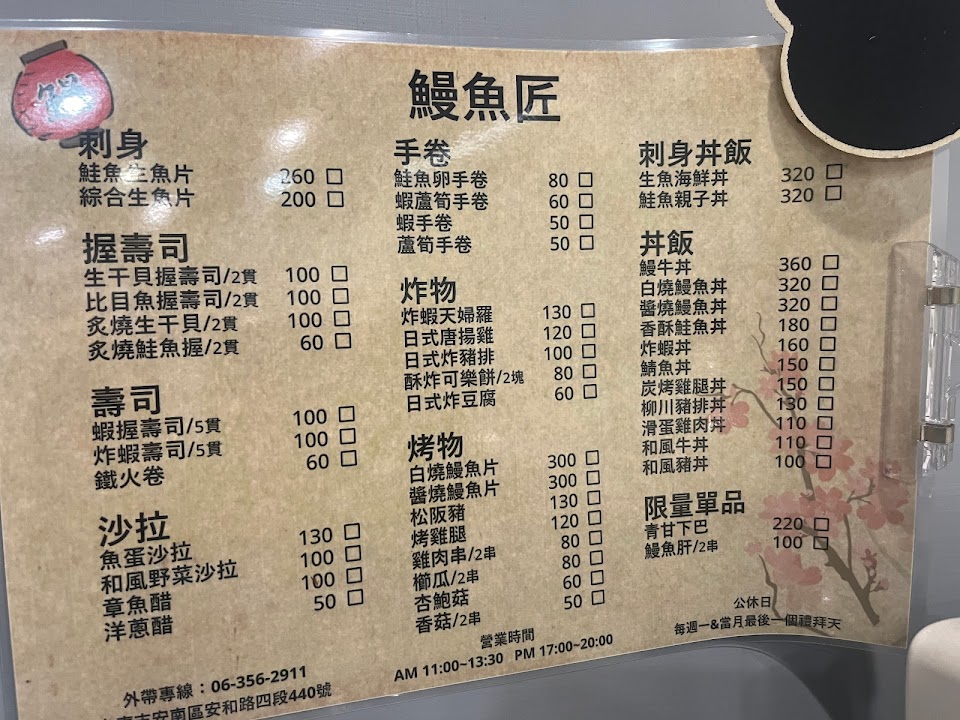 鰻魚匠
刺身
鮭魚生魚片 260 □
綜合生魚片 200 □
握壽司
生干貝握壽司/2貫 100 □
比目魚握壽司/2貫 100 □
炙燒生干貝/2貫 100 □
炙燒鮭魚握/2貫 60 □
壽司
蝦握壽司/5貫 100 □
炸蝦壽司/5貫 100 □
鐵火卷 60 □
沙拉
魚蛋沙拉 130 □
和風野菜沙拉 100 □
章魚醋 100 □
洋蔥醋 50 □
手卷
鮭魚卵手卷 80 □
蝦蘆筍手卷 60 □
蝦手卷 50 □
蘆筍手卷 50 □
炸物
炸蝦天婦羅 130 □
日式唐揚雞 120 □
日式炸豬排 100 □
酥炸可樂餅/2塊 80 □
日式炸豆腐 60 □
烤物
白燒鰻魚片 300 □
醬燒鰻魚片 300 □
松阪豬 130 □
烤雞腿 120 □
雞肉串/2串 80 □
櫛瓜/2串 80 □
杏鮑菇 60 □
香菇/2串 50 □
刺身丼飯
生魚海鮮丼 320 □
鮭魚親子丼 320 □
丼飯
鰻牛丼 360 □
白燒鰻魚丼 320 □
醬燒鰻魚丼 320 □
香酥鮭魚丼 180 □
炸蝦丼 160 □
鯖魚丼 150 □
炭烤雞腿丼 150 □
柳川豬排丼 130 □
滑蛋雞肉丼 110 □
和風牛丼 110 □
和風豬丼 100 □
限量單品
青甘下巴 220 □
鰻魚肝/2串 100 □
外帶專線：06-356-2911
市安南區安和路四段440號
營業時間
AM 11:00~13:30 PM 17:00~20:00
公休日
每週一&當月最後一個禮拜天